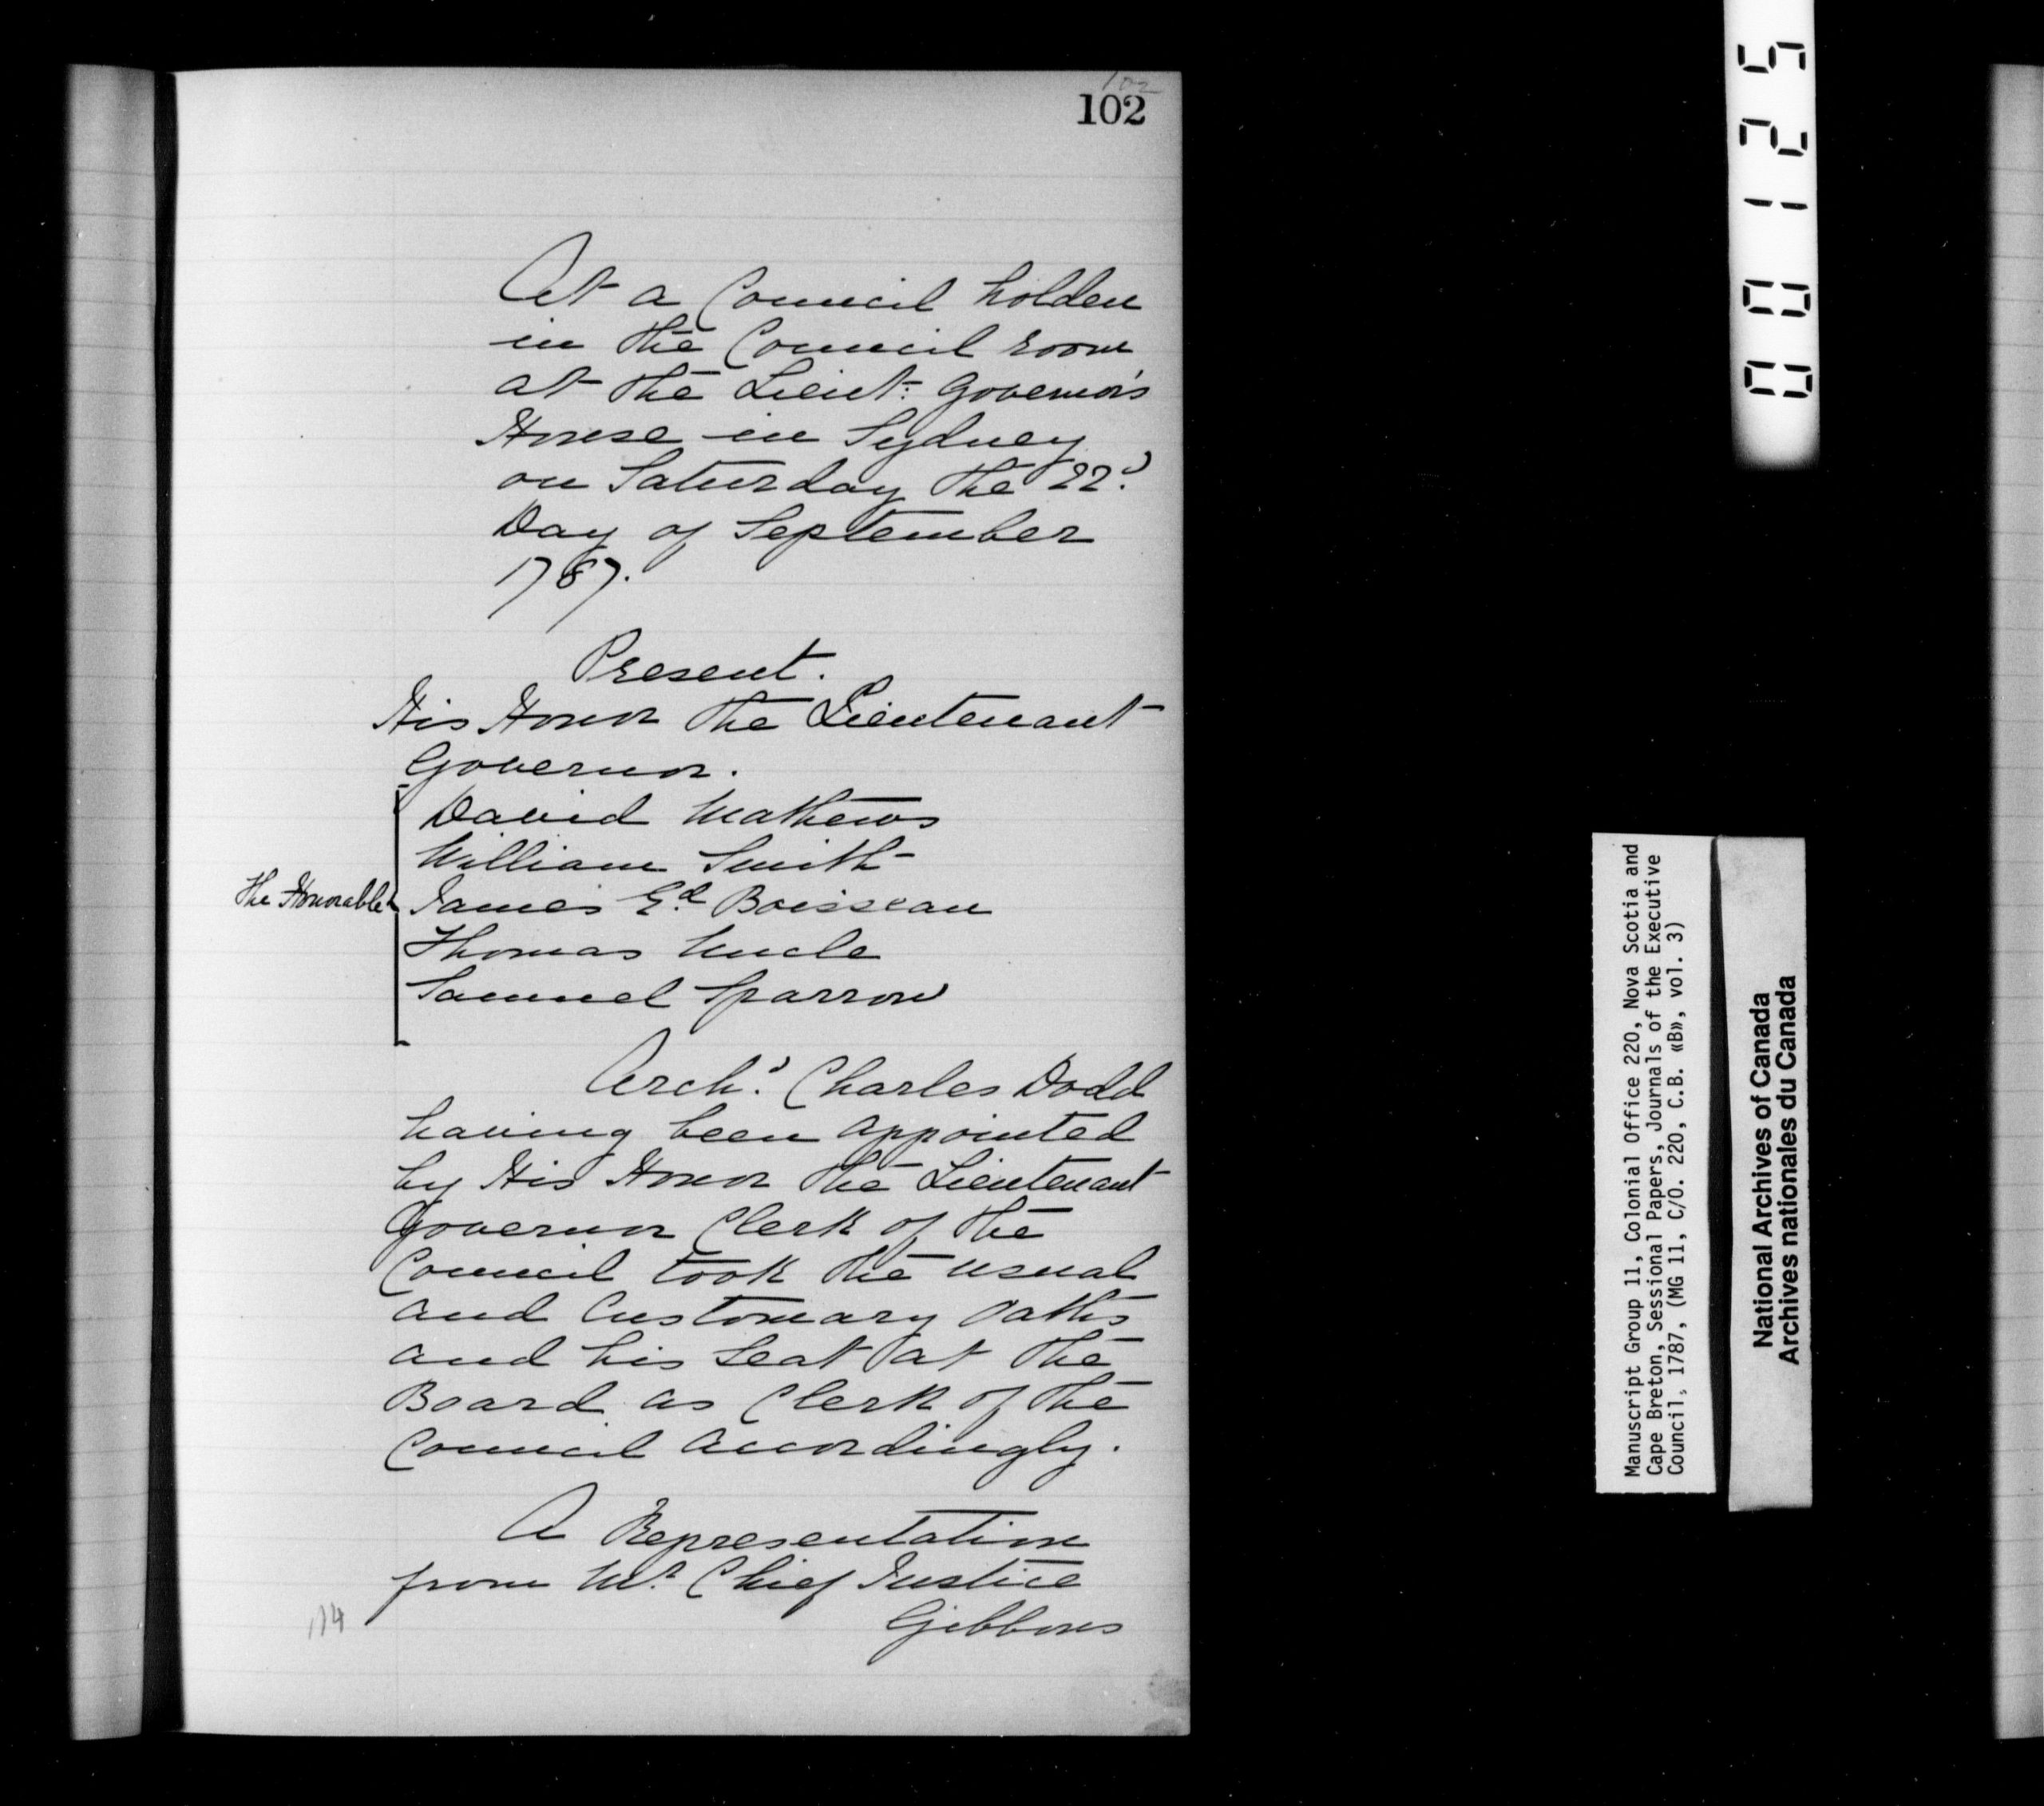 102
102
At a Council holden
in the Council room
at the Lieut: Governor's
House in Sydney
on Saturday the 22d.
Day of September
1787.
Present.
His Honor the Lieutenant
Governor.
David Mathews
William Smith
The Honorable James Ed. Boisseau
Thomas Uncle
Samuel Sparrow
Archd. Charles Dodd
having been appointed
by His Honor the Lieutenant
Governor Clerk of the
Council took the usual
and Customary Oaths
and his Seat at the
Board as Clerk of the
Council accordingly.
A Representation
from Mr. Chief Justice
Gibbons
114
00125
Manuscript Group 11, Colonial Office 220, Nova Scotia and
Cape Breton, Sessional Papers, Journals of the Executive
Council, 1787, (MG 11, C/O. 220, C.B. «B», vol. 3)
National Archives of Canada
Archives nationales du Canada